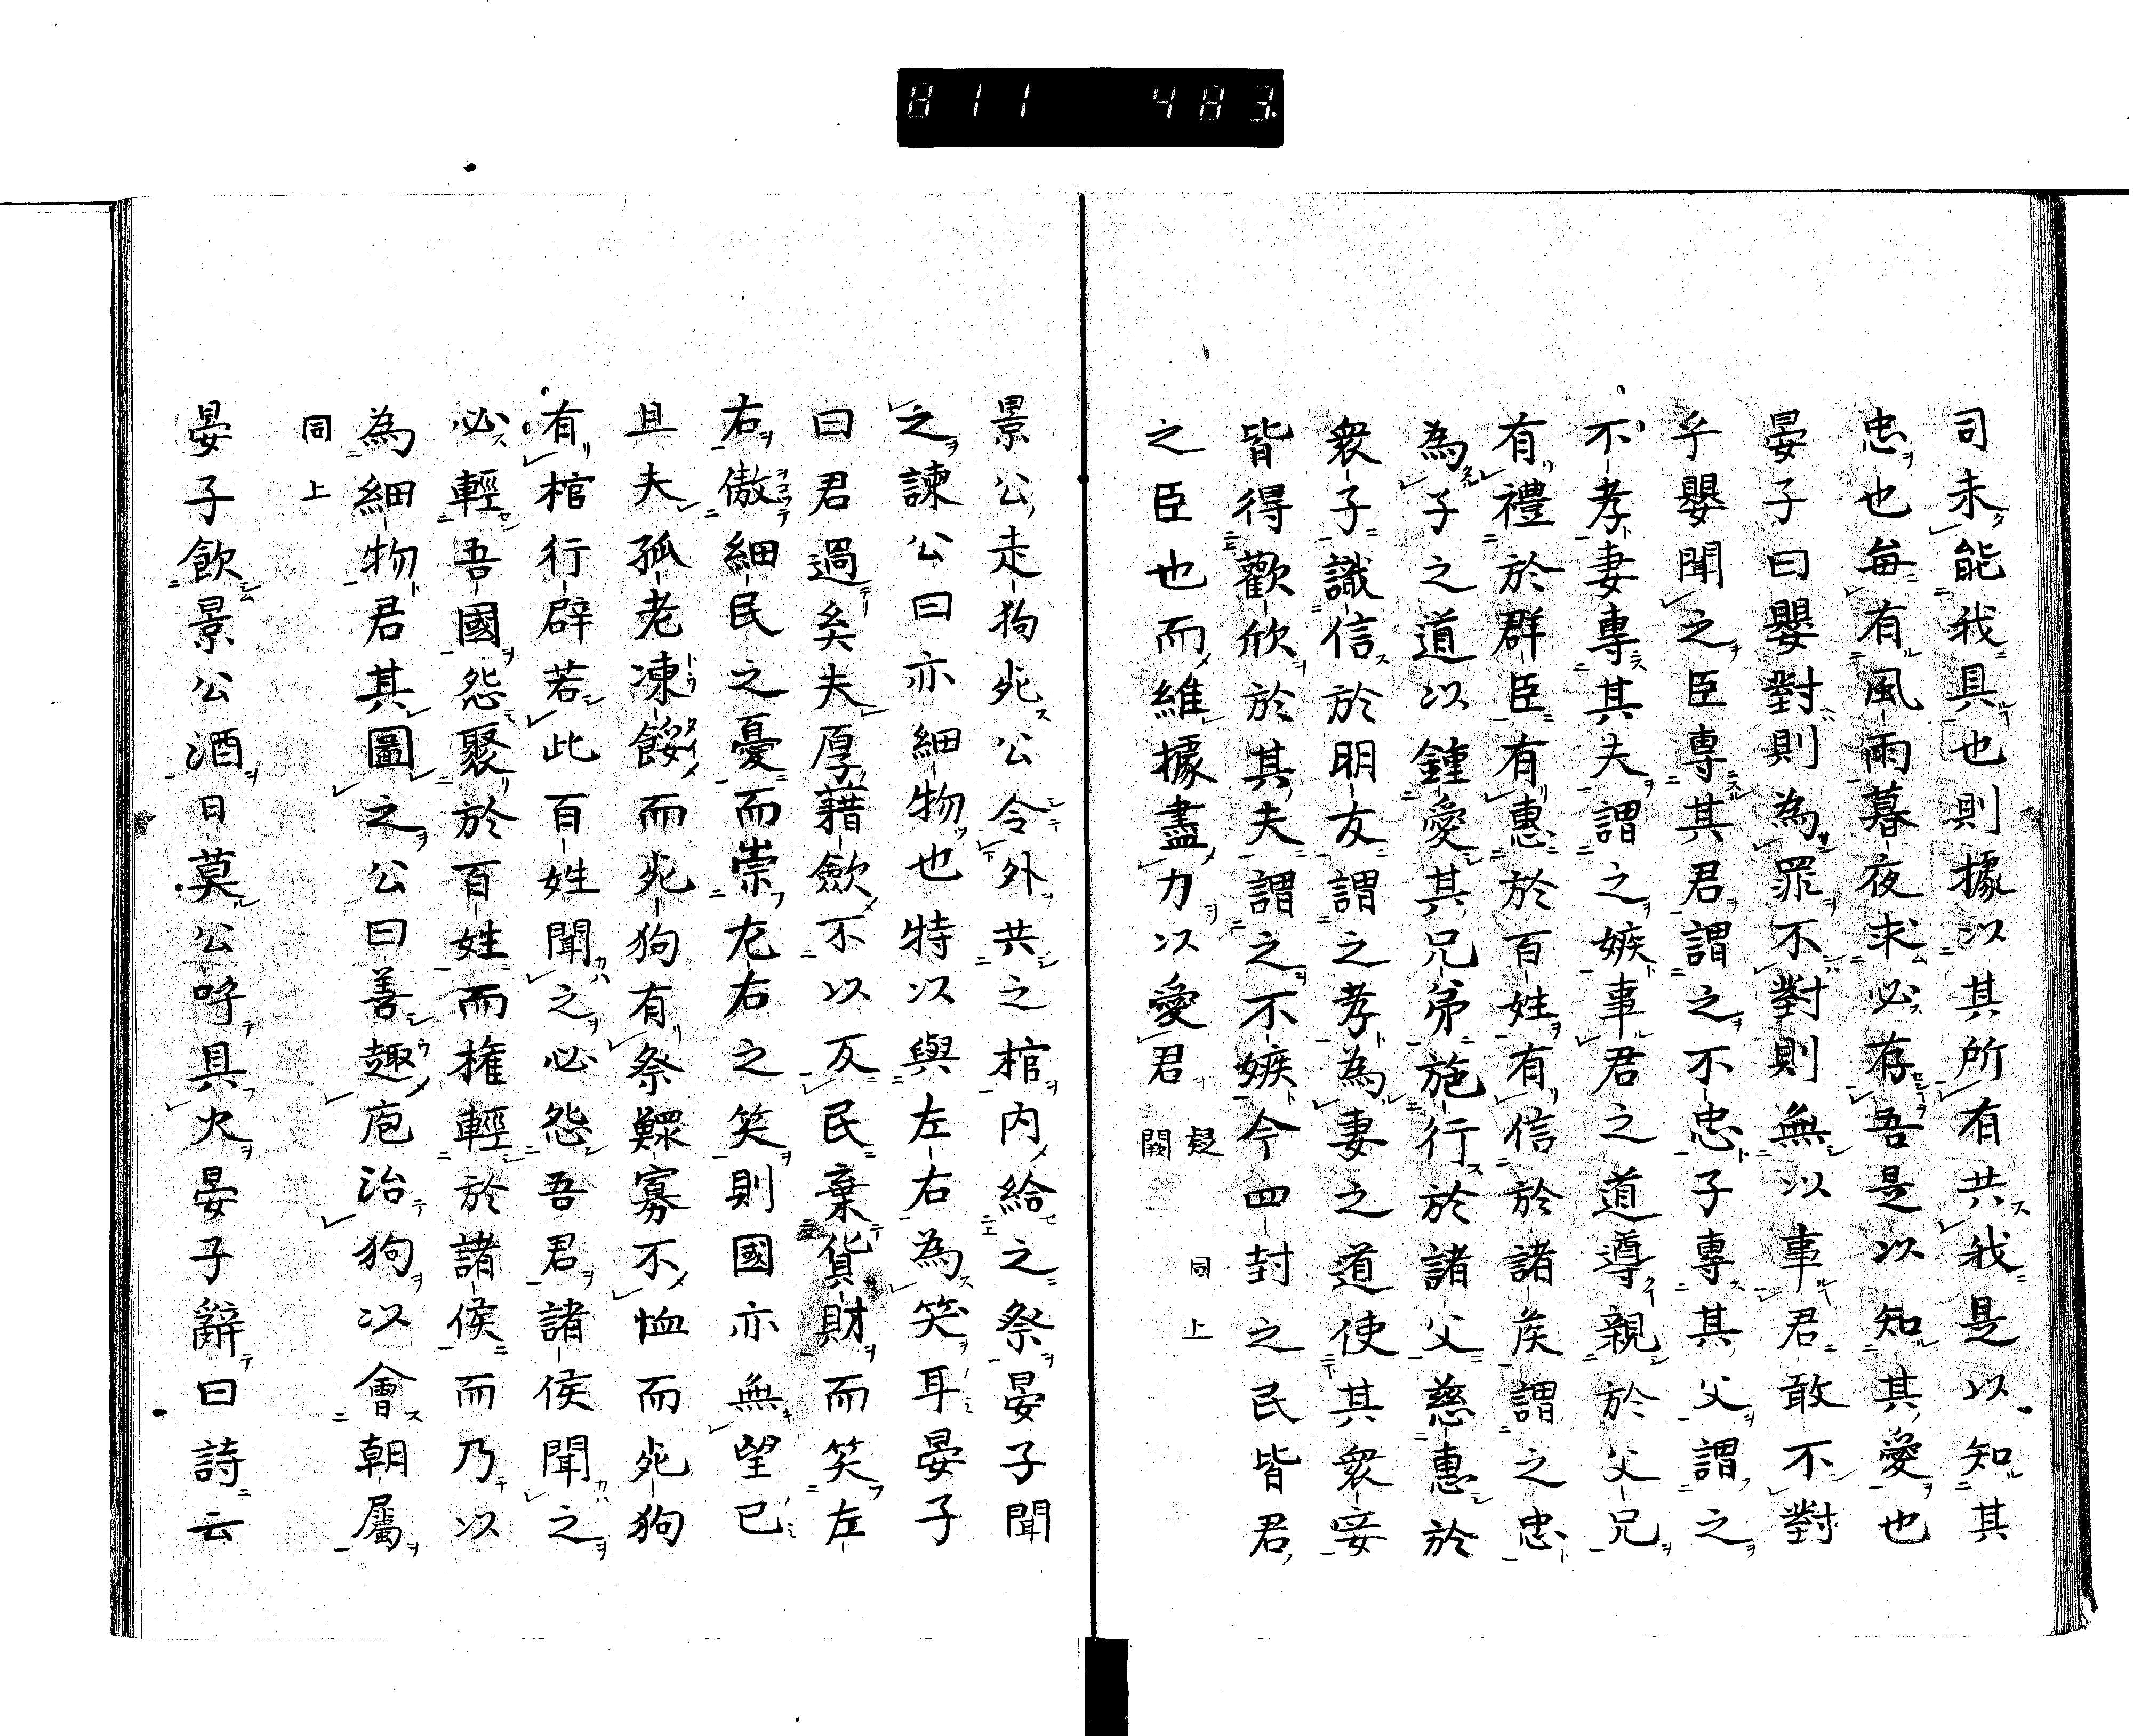 811 483.
司未能我具也則據以其所有共我是以知其
忠也每有風雨暮夜求必存吾是以知其愛也
晏子曰嬰對則為罪不對則無以事君敢不對
乎嬰聞之臣專其君謂之不忠子專其父謂之
不孝妻專其夫謂之嫉事君之道導親於父兄
有禮於群臣有惠於百姓有信於諸侯謂之忠
為子之道以鍾愛其兄弟施行於諸父慈惠於
衆子誠信於朋友謂之孝為妻之道使其衆妾
皆得歡欣於其夫謂之不嫉今四封之民皆君
之臣也而維據盡力以愛君 疑闕 同上
景公走狗死公令外共之棺内給之祭晏子聞
之諫公曰亦細物也特以與左右為笑耳晏子
曰君過矣夫厚藉歛不以反民棄貨財而笑左
右傲細民之憂而崇左右之笑則國亦無望已
且夫孤老凍餒而死狗有祭鰥寡不恤而死狗
有棺行辟若此百姓聞之必怨吾君諸侯聞之
必輕吾國怨聚於百姓而權輕於諸侯而乃以
為細物君其圖之公曰善趣庖治狗以會朝屬
同上
晏子飲景公酒日莫公呼具火晏子辭曰詩云